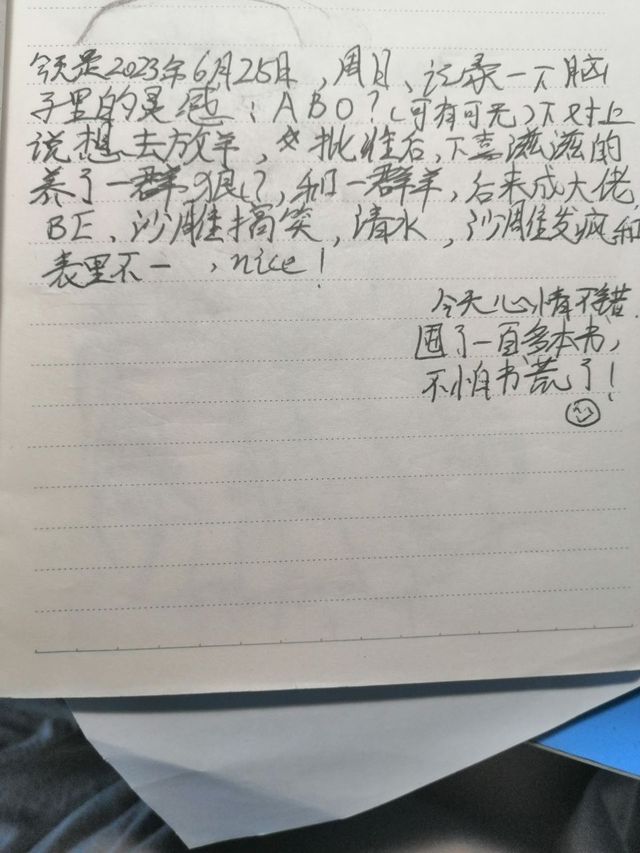 今天是2023年6月25日,周日、记录一下脑
子里的灵感:ABO?(可有可无)下对上
说想去放羊,女批准后,下喜滋滋的
养了一群狼(?,和一群羊,后来成大佬,
BE、沙雕搞笑,清水,沙雕发疯和
表里不一,nice!
今天心情不错.
囤了一百多本书,
不怕书荒了!